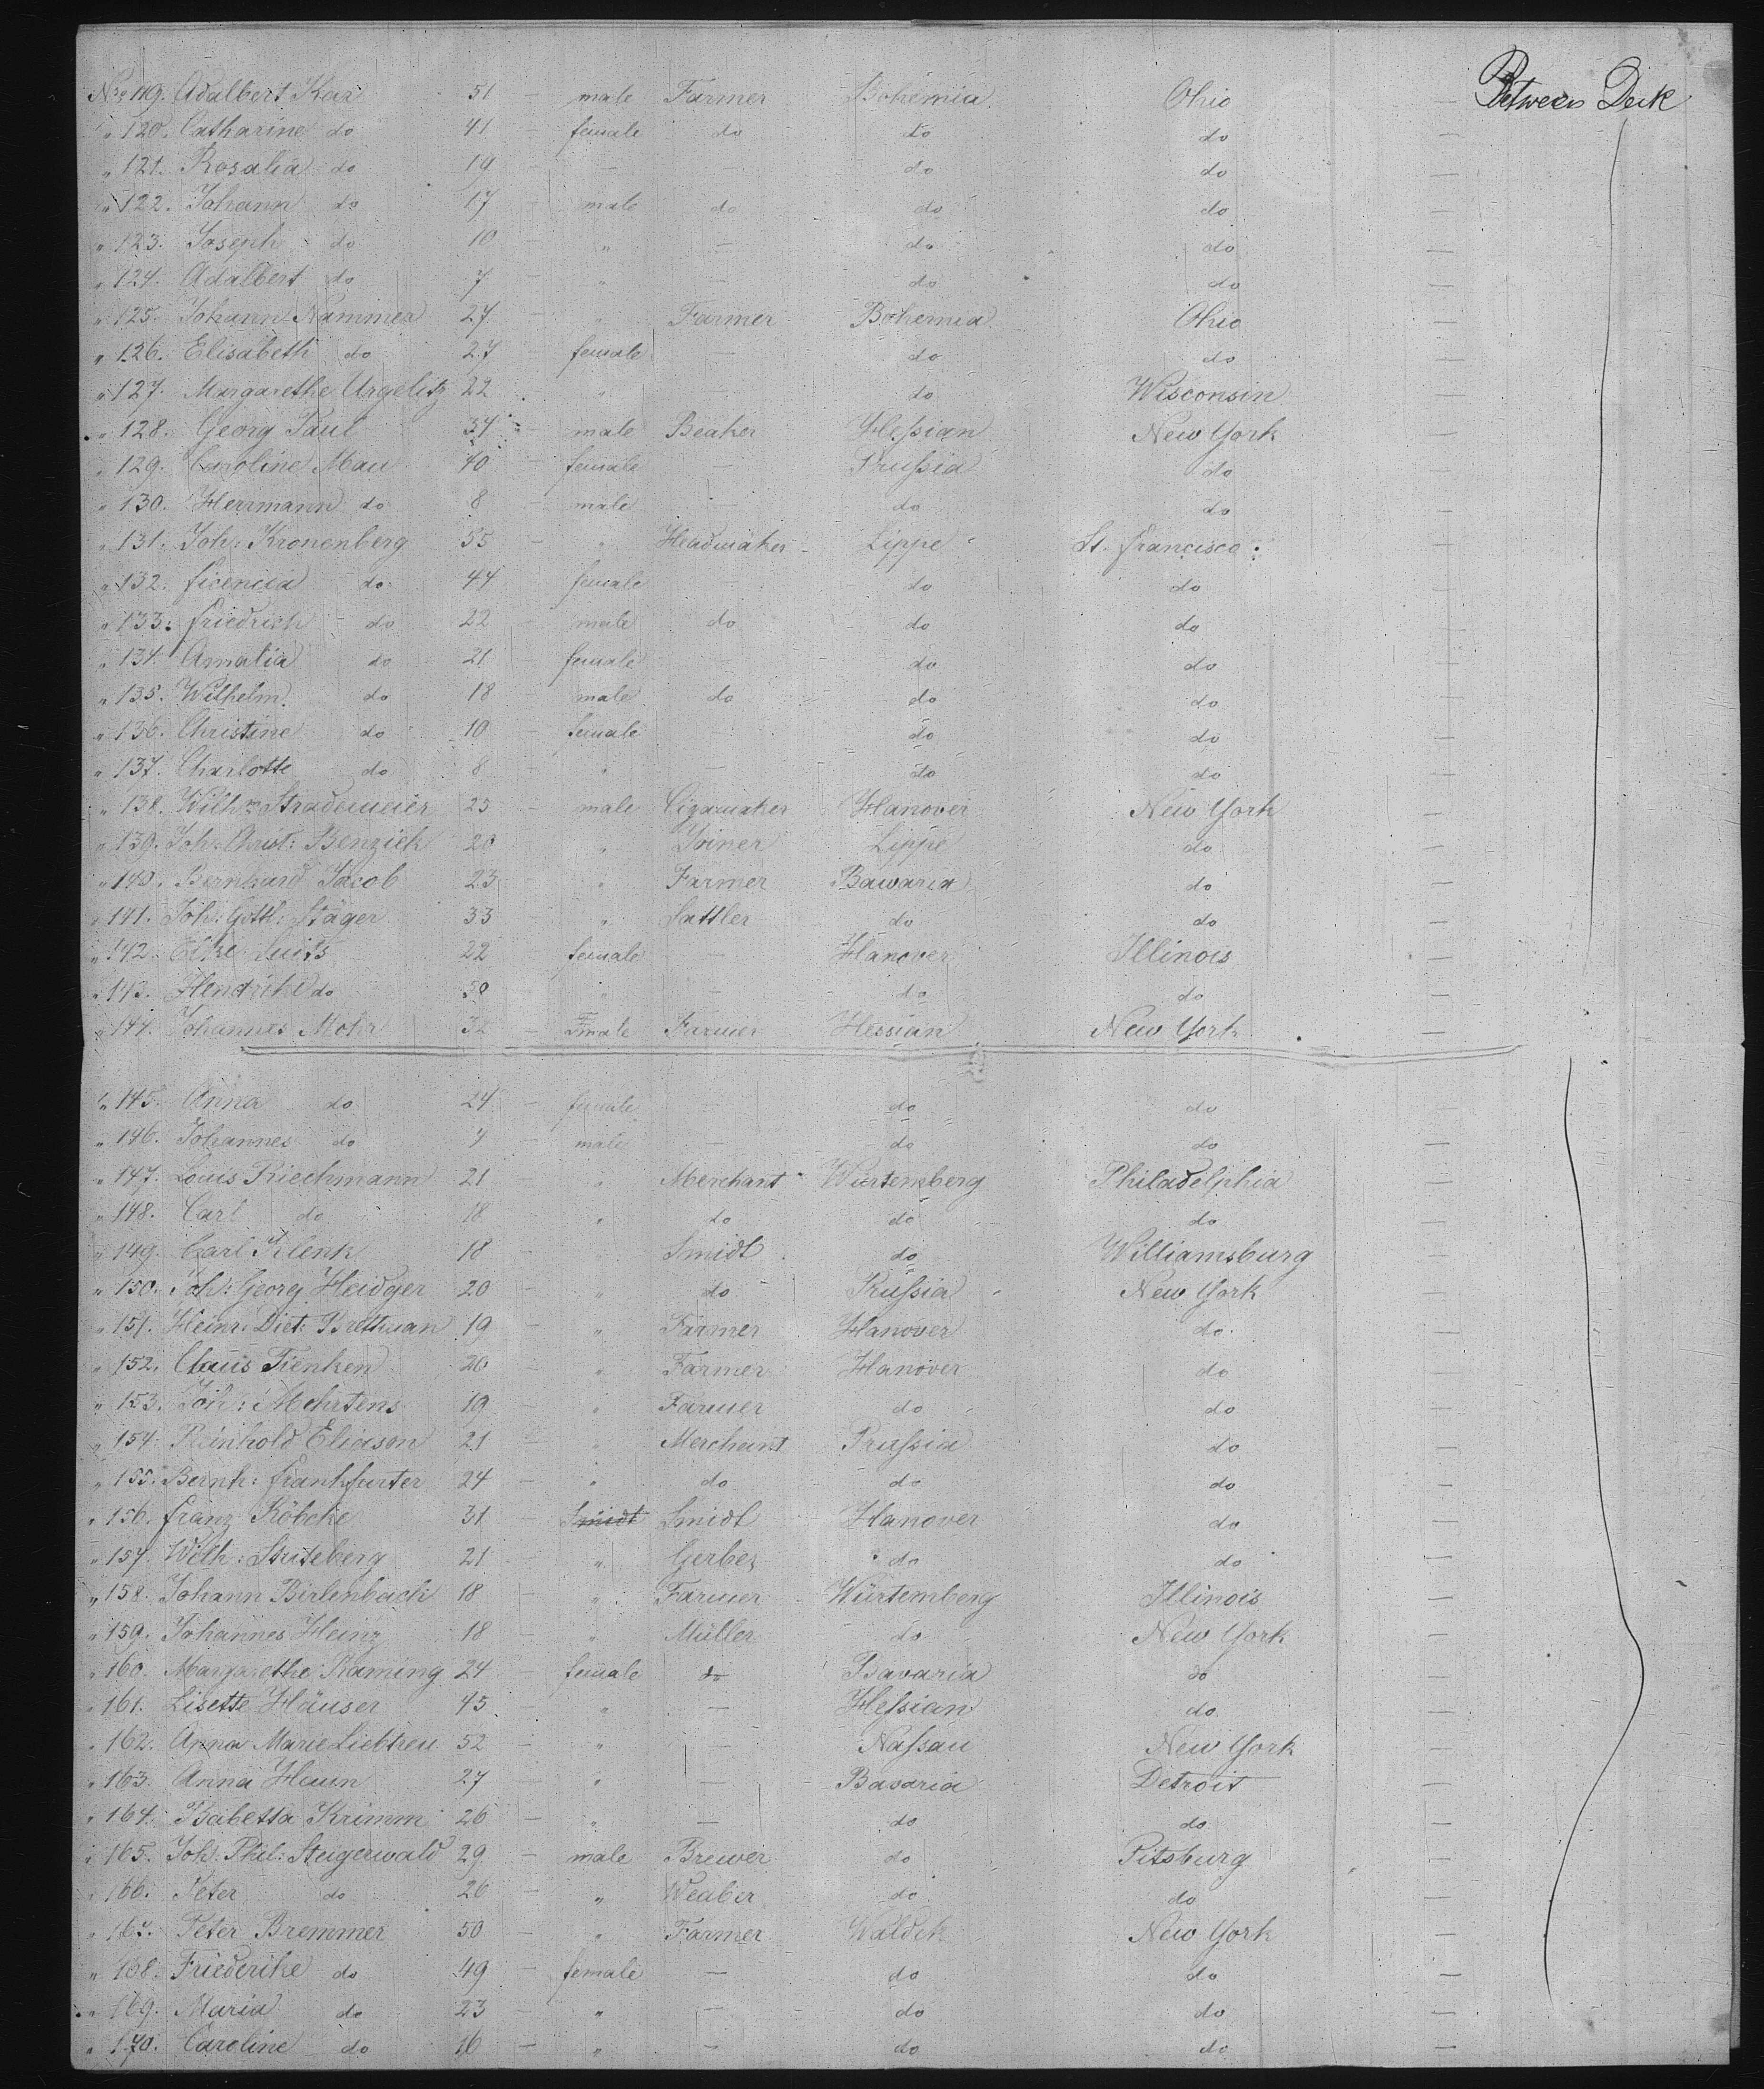 No. 119. Adalbert Kaz 51 - male Farmer Bohemia Ohio — Between Deck
" 120. Catharine do 41 - female do do do —
" 121. Rosalia do 19 - — — do do —
" 122. Johann do 17 - male do do do —
" 123. Joseph do 10 - " — do do —
" 124. Adalbert do 7 - " — do do —
" 125. Johann Nammer 27 - " Farmer Bohemia Ohio —
" 126. Elisabeth do 27 - female — do do —
" 127. Margarethe Urgelitz 22 - " — do Wisconsin —
" 128. Georg Paul 34 - male Beaker Heſsian New York —
" 129. Caroline Mau 40 - female — Pruſsia do —
" 130. Herrmann do 8 - male — do do —
" 131. Joh: Kronenberg 55 - " Headmaker Lippe St. Francisco —
" 132. do 44 - female — do do —
" 133. Friedrich do 22 - male do do do —
" 134. Amalia do 21 - female — do do —
" 135. Wilhelm do 18 - male do do do —
" 136. Christine do 10 - female — do do —
" 137. Charlotte do 8 - " — do do —
" 138. Wilhm Strademeier 25 - male Cigarmaker Hanover New York —
" 139. Joh: Christ: Benzick 20 - " Joiner Lippe do —
" 140. Bernhard Jacob 23 - " Farmer Bawaria do —
" 141. Joh: Gottl: Stäger 33 - " Sattler do do —
" 142. Elke Luits 22 - female — Hanover Illinois —
" 143. Hendrike do 30 - " — do do —
" 144. Johannes Mohr 32 - male Farmer Hessian New York —
" 145. Anna do 24 - female — do do —
" 146. Johannes do 4 - male — do do —
" 147. Louis Riechmann 21 - " Merchant Würtemberg Philadelphia —
" 148. Carl do 18 - " do do do —
" 149. Carl Klenk 18 - " Smidt do Williamsburg —
" 150. Joh: Georg Heidger 20 - " do Pruſsia New York —
" 151. Heinr: Diet: Brettman 19 - " Farmer Hanover do —
" 152. Claus Tienken 20 - " Farmer Hanover do —
" 153. Joh: Mehrtens 19 - " Farmer do do —
" 154. Reinhold Eliason 21 - " Merchant Pruſsia do —
" 155. Bernh: Frankfurter 24 - " do do do —
" 156. Franz Köbcke 31 - Smidt Smidt Hanover do —
" 157. Wilh: Stuteberg 21 - " Gerber do do —
" 158. Johann Birlenbach 18 - " Farmer Würtemberg Illinois —
" 159. Johannes Heinz 18 - " Müller do New York —
" 160. Margarethe Raming 24 - female do Bavaria do —
" 161. Lisette Häuser 45 - " — Heſsian do —
" 162. Anna Marie Liebtreu 52 - " — Naſsau New York —
" 163. Anna Haun 27 - " — Bavaria Detroit —
" 164. Babetta Krimm 26 - " — do do —
" 165. Joh: Phil: Steigerwald 29 - male Brewer do Pitsburg —
" 166. Peter do 26 - " Weaber do do —
" 167. Peter Bremmer 50 - " Farmer Waldek New York —
" 168. Friederike do 49 - female — do do —
" 169. Maria do 23 - " — do do —
" 170. Caroline do 16 - " — do do —